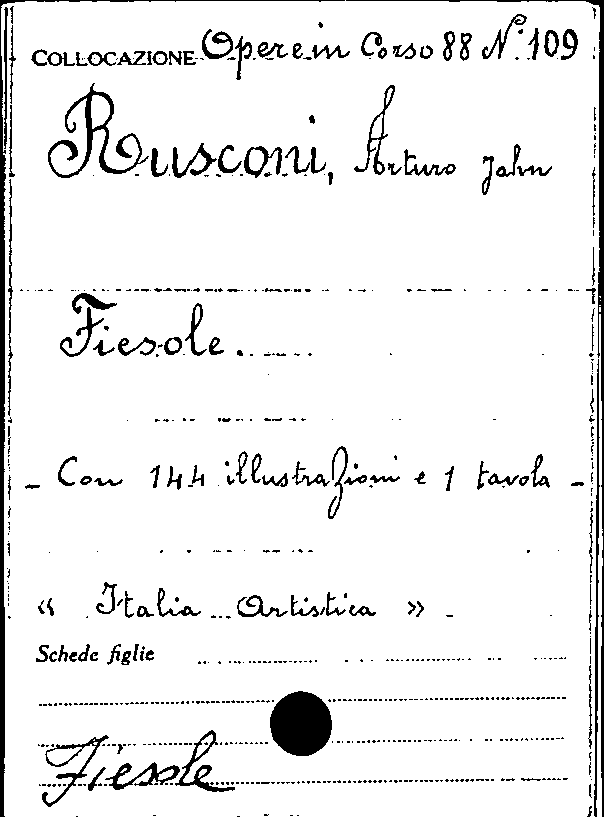 COLLOCAZIONE Opere in Corso 88 N.° 109
Rusconi, Arturo Jahn
Fiesole.
- Con 144 illustrazioni e 1 tavola -
« Italia Artistica » -
Schede figlie
Fiesole